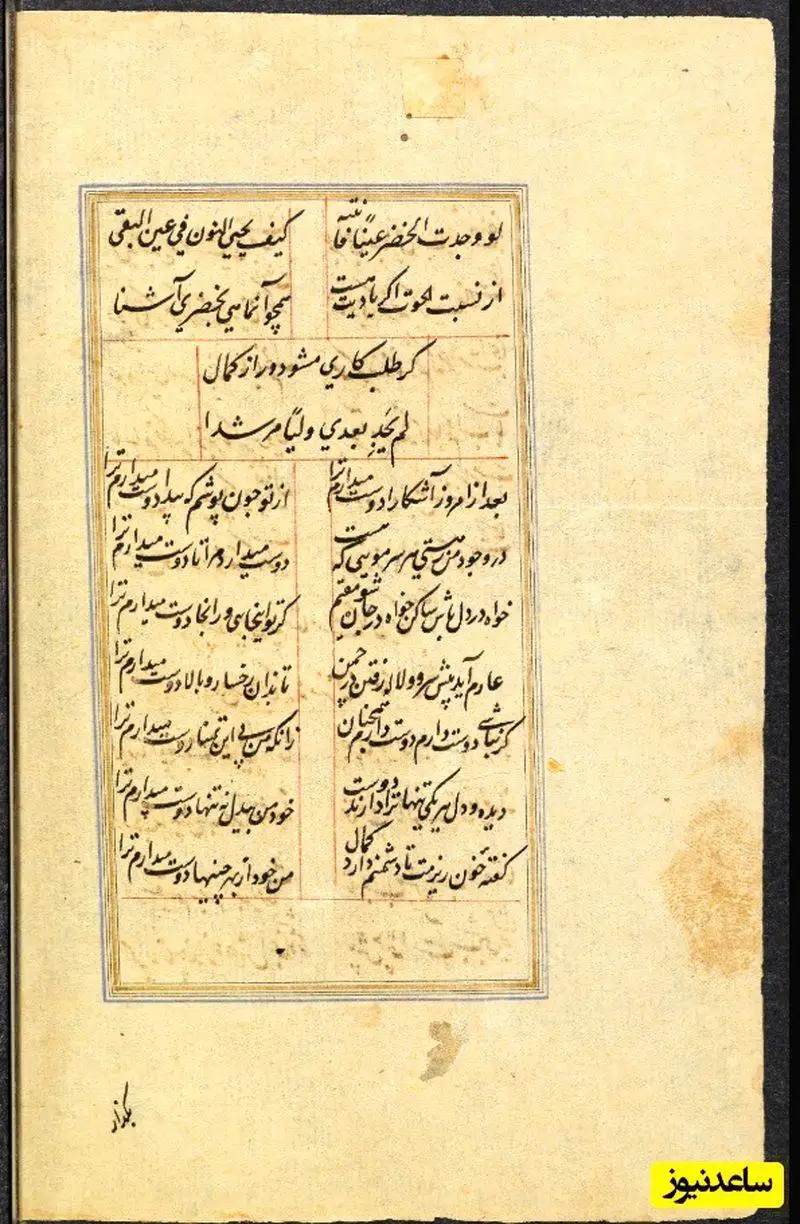 لو وجدت الخضر عينًا فانتبه كيف يحيي النون في عين البقي
از نسبت الحوت اكر ياديت هست همچو آن ماهي بخضري آشنا
كر طلب كاري مشو دور از كمال
لم تجد بعدي وليًا مرشدا
بعد ازامروز آشكارا دوست ميدارم ترا از تو چون پوشم كه پيدا دوست ميدارم ترا
در وجود من ز هستي هر سر مويي كه هست دوست ميدارد مرا تا دوست ميدارم ترا
خواه در دل باش ساكن خواه در جان شو مقيم كر تو اينجايي ور آنجا دوست ميدارم ترا
عارم آيد پيش سرو و لاله رفتن در چمن تا بدان رخسار و بالا دوست ميدارم ترا
كر نباشي دوست دارم دوست دارم همچنان زانكه من بي اين تمنا دوست ميدارم ترا
ديده و دل هر يكي تنها ترا دارند دوست خود من بيدل نه تنها دوست ميدارم ترا
كفتهٔ خون ريزمت تا دشمنم دارد كمال من خود از بهر چنينها دوست ميدارم ترا
بكذار
ساعدنیوز